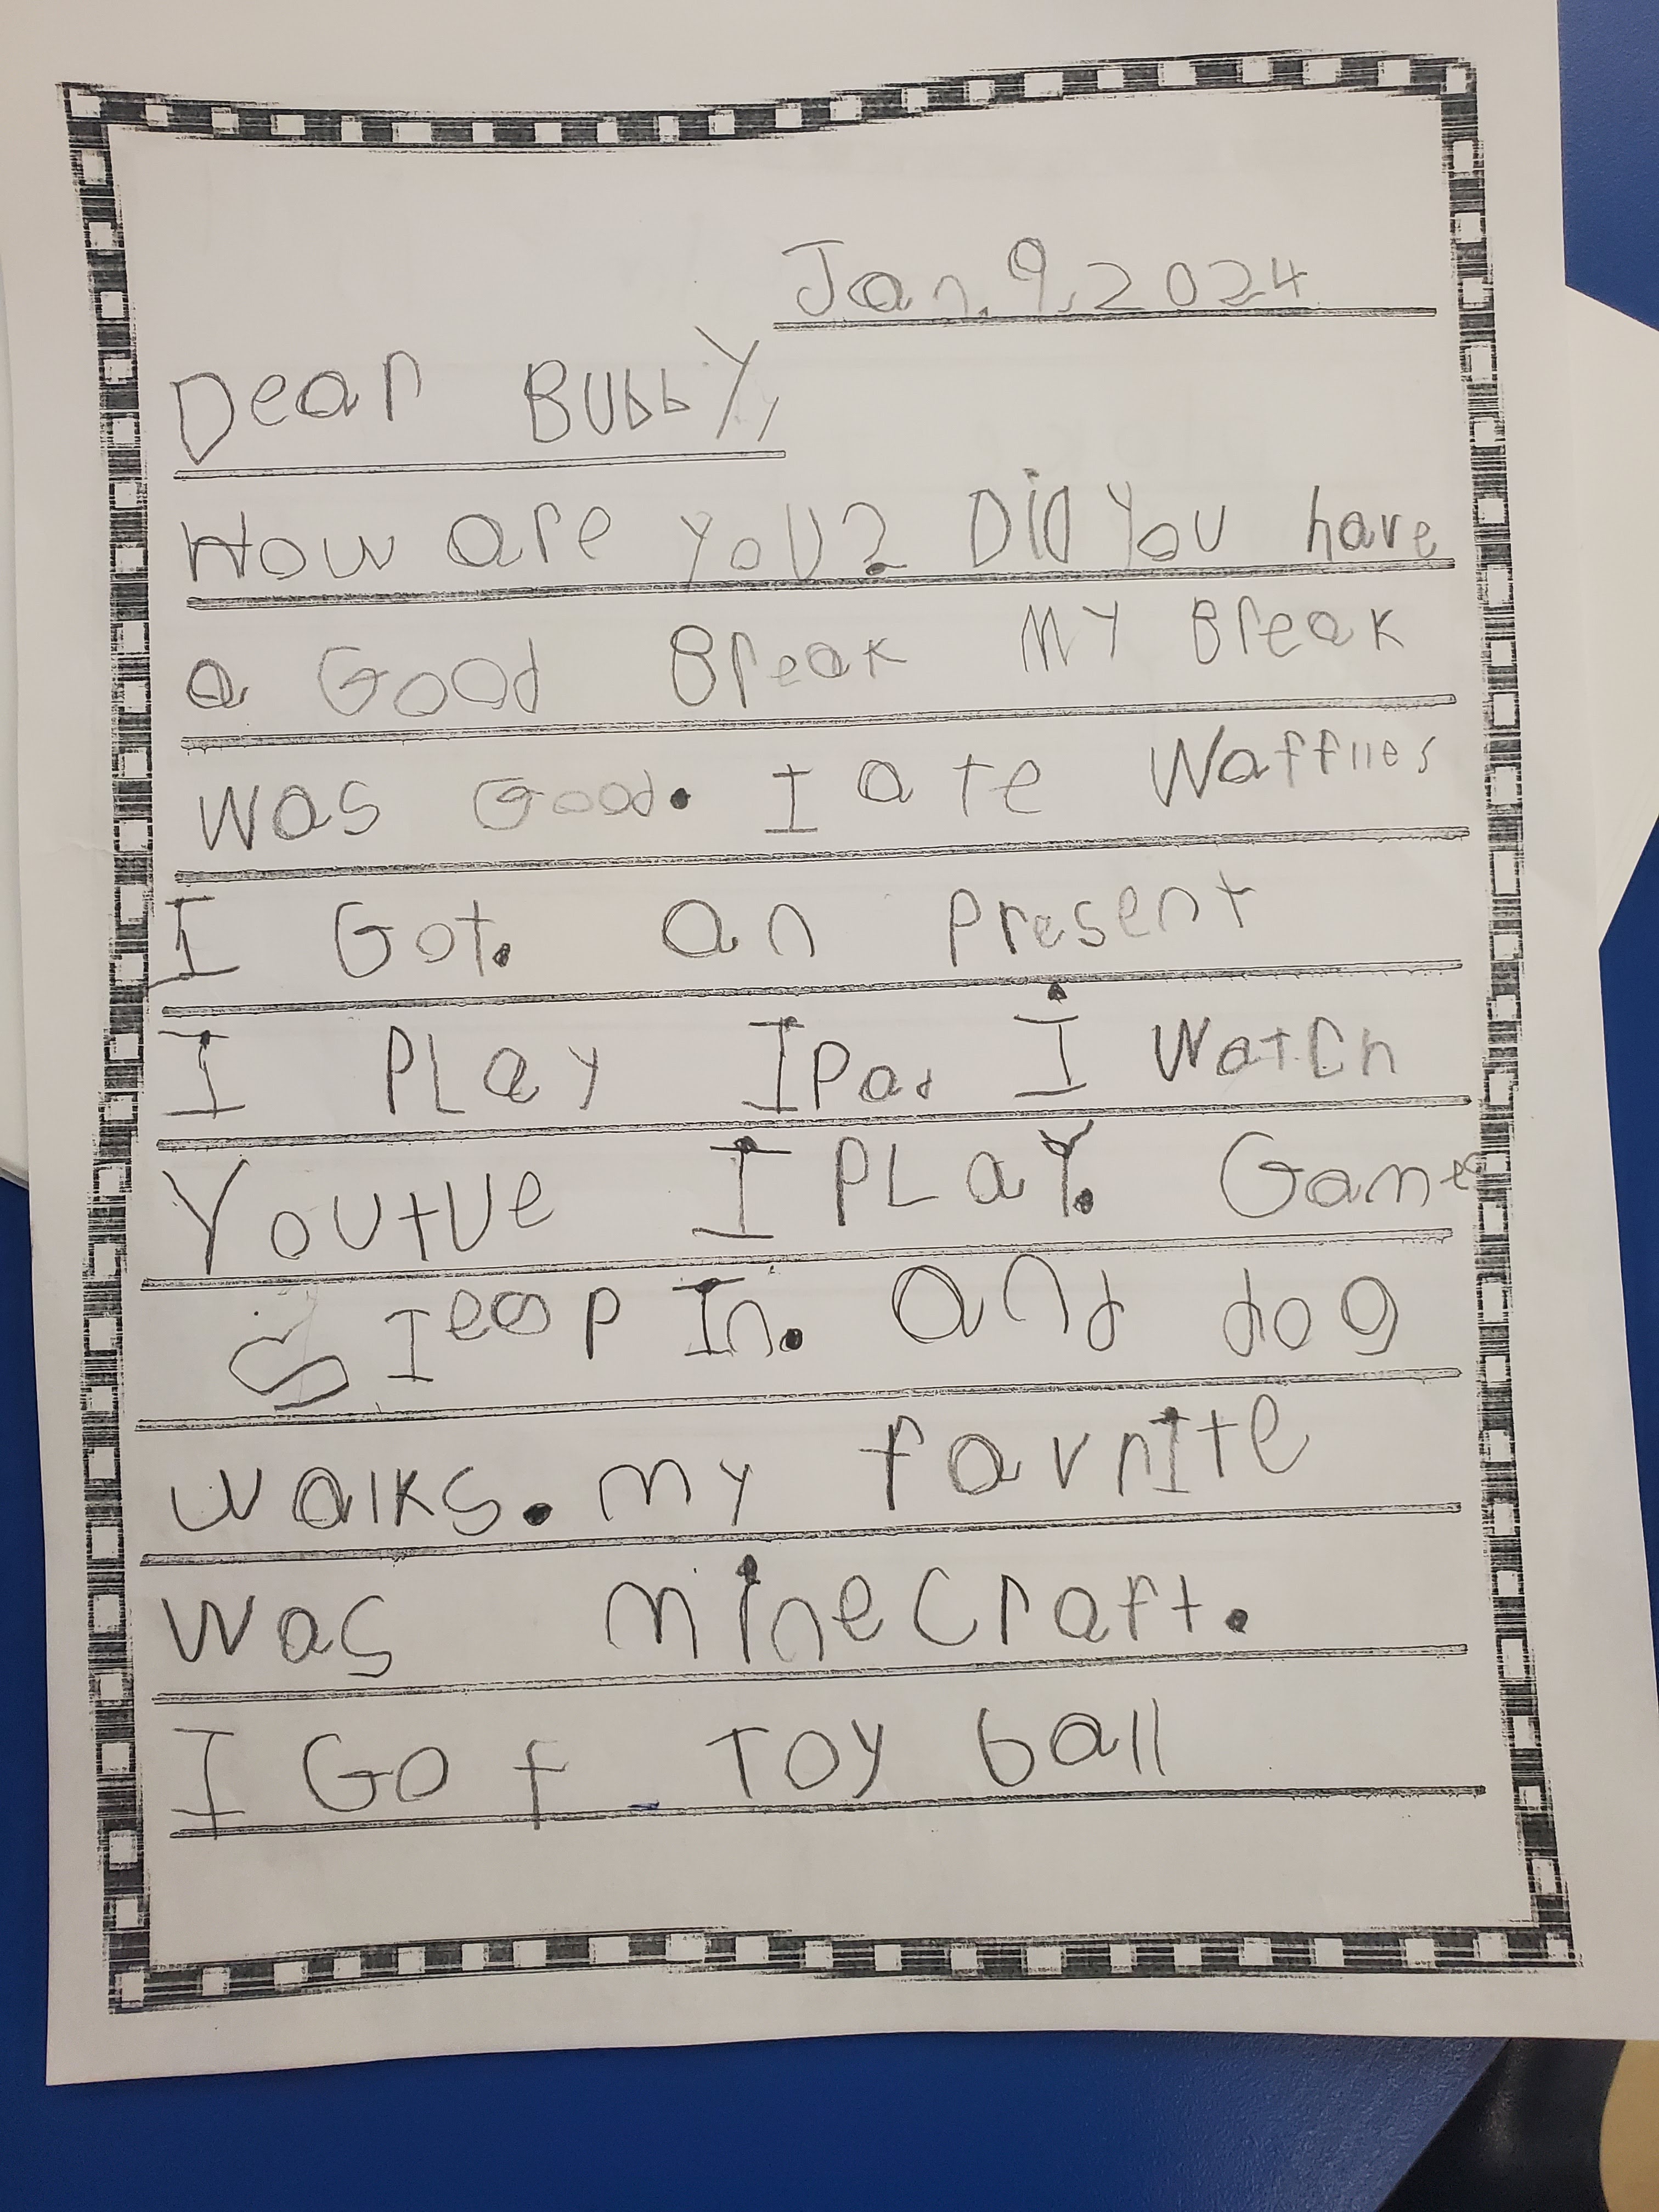 Jan. 9, 2024
Dear BUbbY,
How are yoU? DiD YoU have
a GooD Break MY Break
was Good. I ate Wafflles
I Got. an Present
I PLay IPad I WatCh
YoUtUe I PLaY. Games
SIeep In. and dog
walks. my favnIte
was mineCraft.
I Got Toy ball